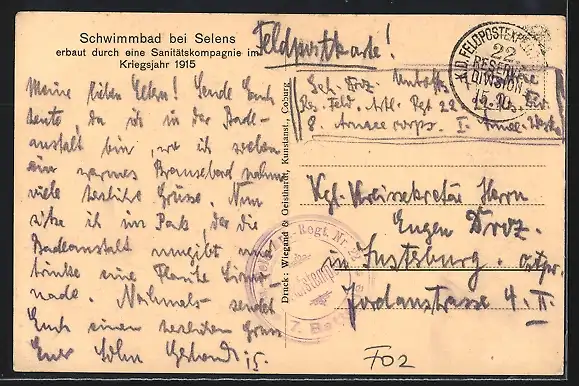 Schwimmbad bei Selens
erbaut durch eine Sanitätskompagnie im
Kriegsjahr 1915
Feldpostkarte!
Meine lieben Eltern! Sende Euch
heute, da ich in der Bade-
anstalt bin, wo ich soeben
ein warmes Brausebad nahm
viele herzliche Grüsse. Nun
sitze ich im Park, der die
Badeanstalt umgibt und
trinke eine Flasche Limo-
nade. Nochmals sendet
Euch einen herzlichen Gruss
Euer Sohn
Druck: Wiegand & Geisthardt, Kunstanst., Coburg
K.D. FELDPOSTEXP.
22.
RESERVE
DIVISION
Res. Feld. Artl. Rgt 22
8. Armeecorps. I. Armee. Westen
Regt. Nr.
7. Bat
Kgl. Kreissekretär Herrn
Eugen Droz.
in Insterburg. Ostpr.
Jordanstrasse 4. II
F02